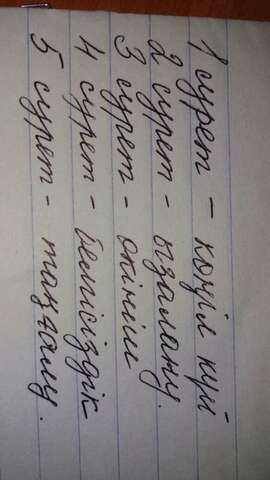 1 сурет – көңіл күй
2 сурет – ызалану.
3 сурет – өкініш
4 сурет – белгісіздік
5 сурет – таңдану.